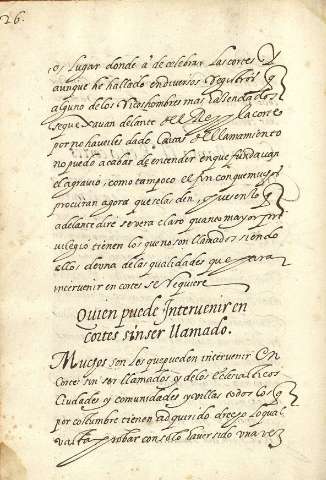 26.
os lugar donde à de celebrar las cortes Y
aunque he hallado en diversos Registros q
alguno de los Ricos hombres mas hazendados
se quexavan delante del Rey y la corte
por no haverles dado Cartas de llamamiento
no puedo acabar de entender en que fundavan
el agravio, como tampoco el fin con que muchos
procuran agora que se la den, pues en lo q
adelante diré se vera claro quanto mayor pri
vilegio tienen los que no son llamados siendo
ellos de una de las qualidades que para
intervenir en cortes se requiere
Quien puede Intervenir en
cortes sin ser llamado.
Muchos son los que pueden intervenir En
Cortes sin ser llamados y de los Eclesiasticos
Ciudades y comunidades y villas todos los q
por costumbre tienen adquirido drecho lo qual
valta probar con solo haver sido una vez